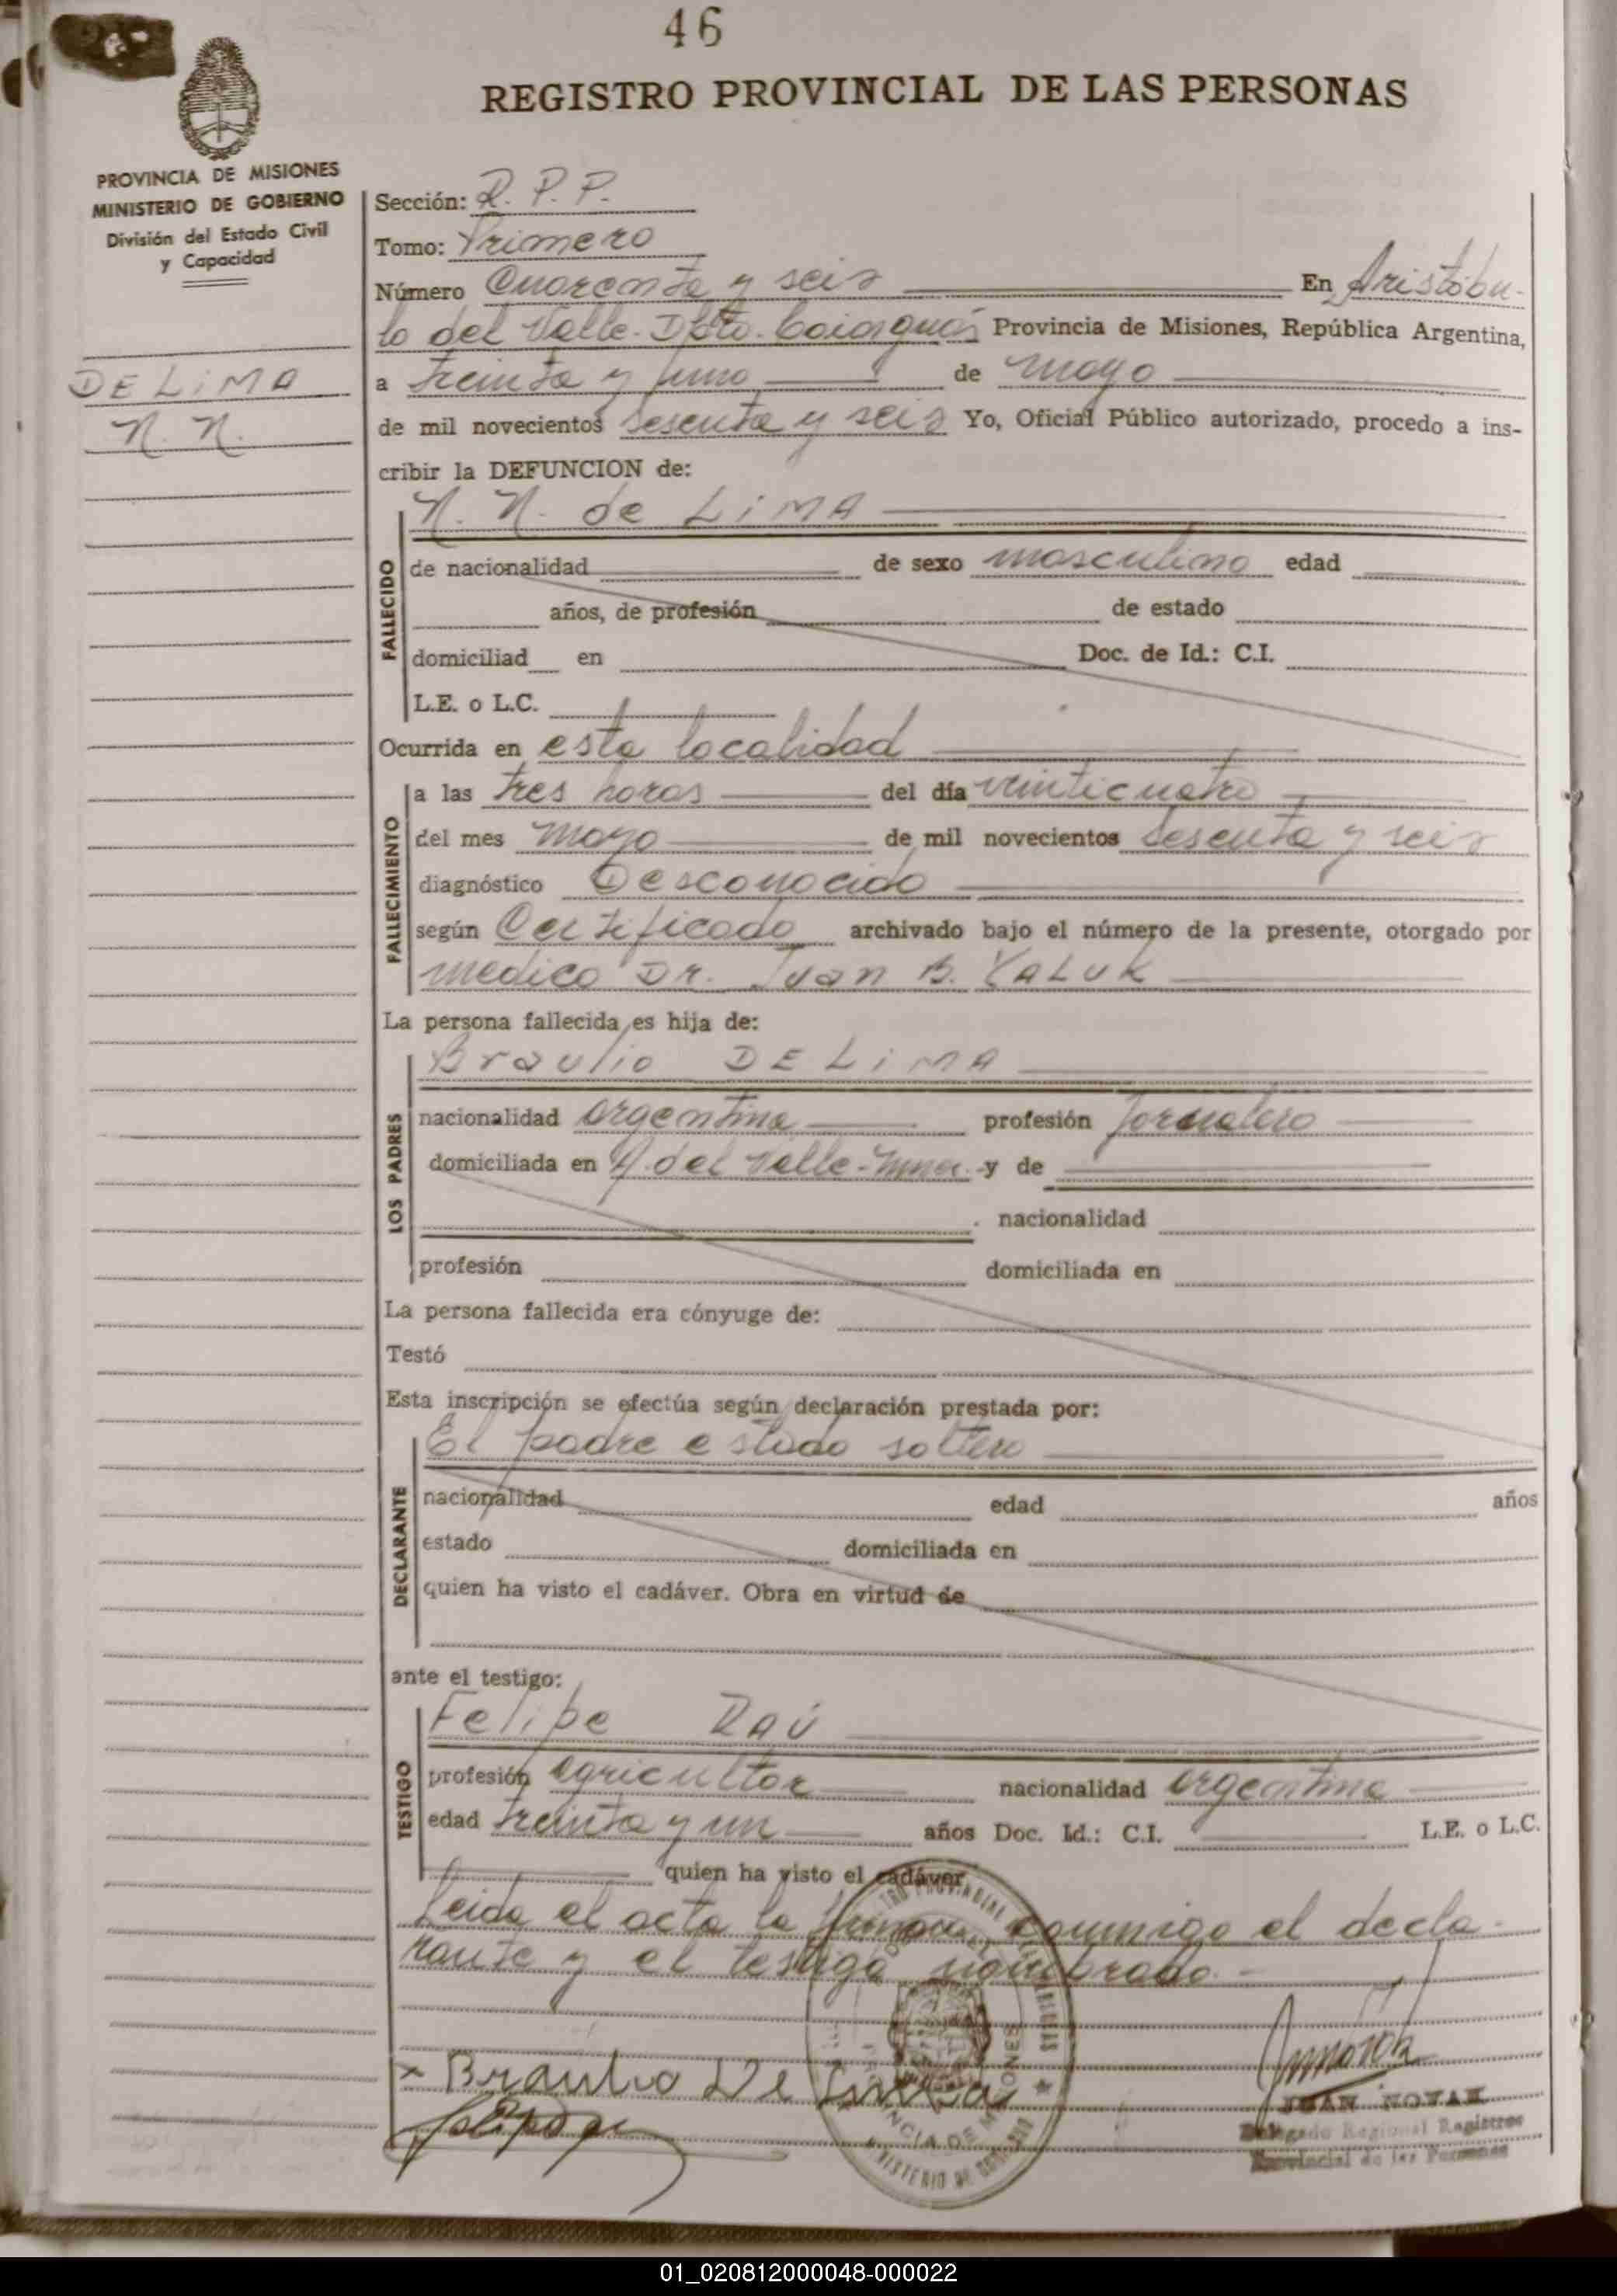 46
REGISTRO PROVINCIAL DE LAS PERSONAS
PROVINCIA DE MISIONES
MINISTERIO DE GOBIERNO
División del Estado Civil
y Capacidad
DE LIMA
N. N.
Sección: R. P. P.
Tomo: Primero
Número Cuarenta y seis En Aristóbu-
lo del Valle. Dpto. Caiaguás Provincia de Misiones, República Argentina,
a treinta y uno de mayo
de mil novecientos sesenta y seis Yo, Oficial Público autorizado, procedo a ins-
cribir la DEFUNCION de:
N. N. de LiMA
FALLECIDO
de nacionalidad de sexo masculino edad
años, de profesión de estado
domiciliad en Doc. de Id.: C.I.
L.E. o L.C.
Ocurrida en esta localidad
FALLECIMIENTO
a las tres horas del día veinticuatro
del mes Mayo de mil novecientos sesenta y seis
diagnóstico Desconocido
según Certificado archivado bajo el número de la presente, otorgado por
medico Dr. Juan B. YALUK
La persona fallecida es hija de:
Braulio DE LiMA
LOS PADRES
nacionalidad argentina profesión Jornalero
domiciliada en A. del Valle- y de
nacionalidad
profesión domiciliada en
La persona fallecida era cónyuge de:
Testó
Esta inscripción se efectúa según declaración prestada por:
El padre estado soltero
DECLARANTE
nacionalidad edad años
estado domiciliada en
quien ha visto el cadáver. Obra en virtud de
ante el testigo:
Felipe RaÚ
TESTIGO
profesión agricultor nacionalidad argentina
edad treinta y un años Doc. Id.: C.I. L.E. o L.C.
quien ha visto el cadáver
Leida el acta la firman conmigo el decla-
rante y el testigo nombrado.-
x Braulio De Lima
JUAN NOVAK
Delegado Regional Registro
Provincial de las Personas
PROVINCIA DE MISIONES
MINISTERIO DE GOBIERNO
01_020812000048-000022